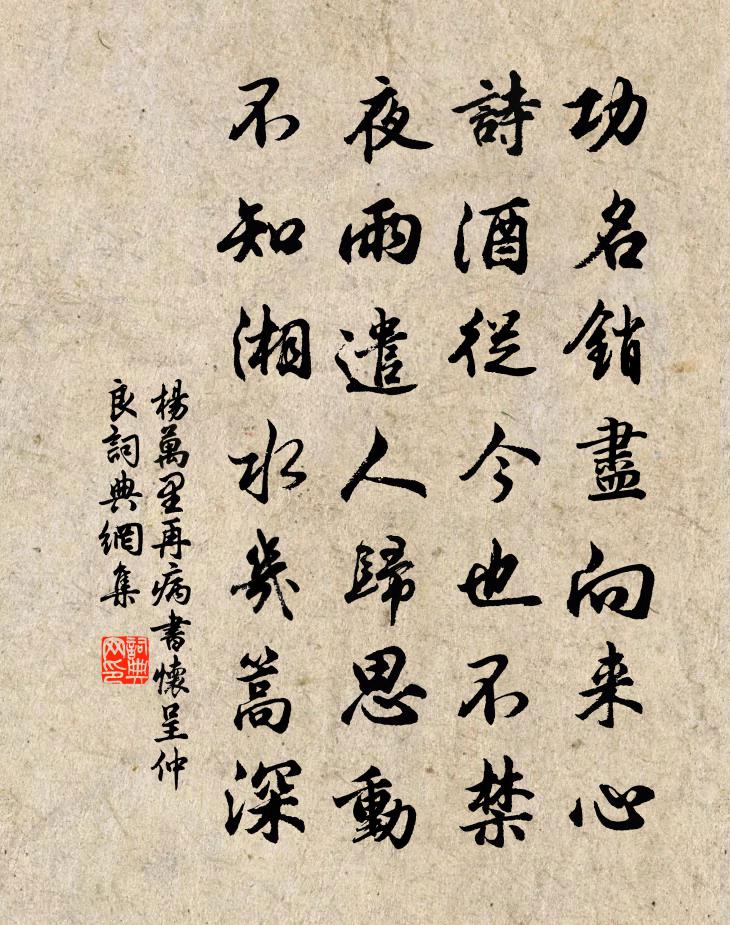 功名銷盡向来心
詩酒從今也不禁
夜雨遣人歸思動
不知湘水幾篙深
楊萬里再病書懷呈仲
良詞典網集
詞典网印